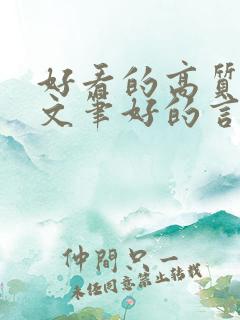 好看的高質
文筆好的言
仲間只一
未经同意禁止转载